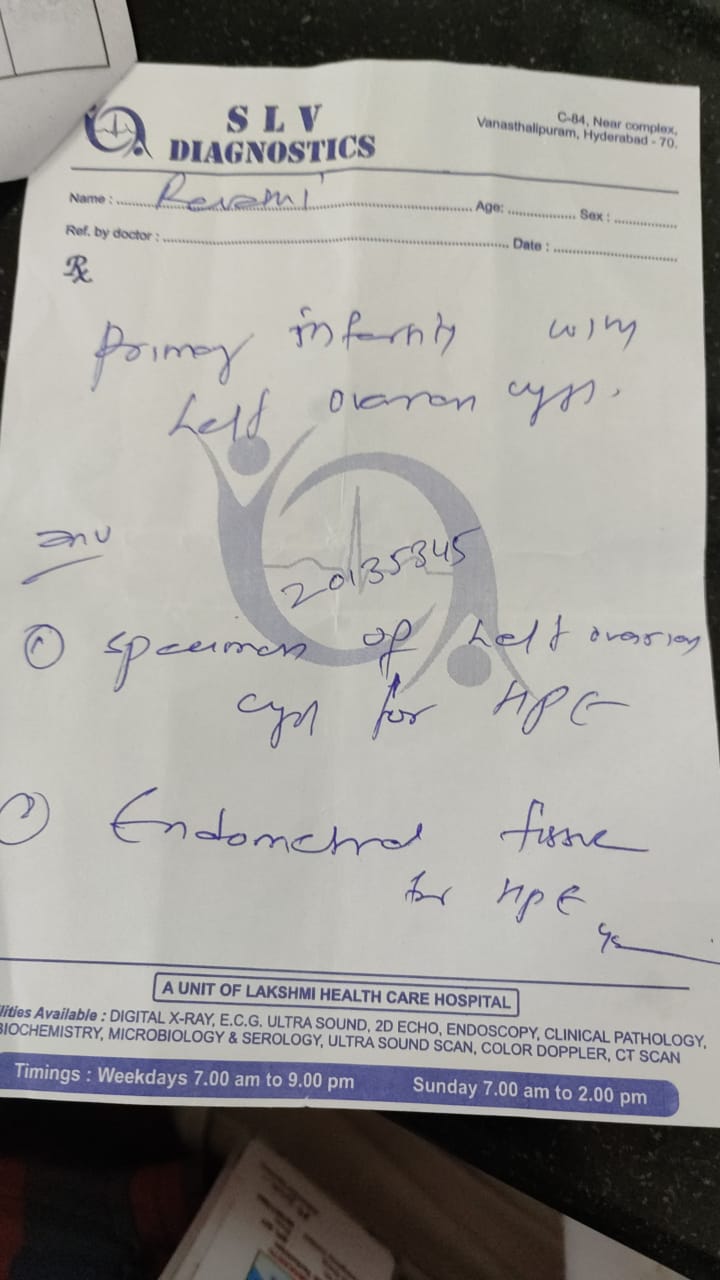 SLV
DIAGNOSTICS
C-84, Near complex,
Vanasthalipuram, Hyderabad - 70.
Name : Age: Sex :
Ref. by doctor : Date :
Rx
Primary infertility with
Left ovarian cyst.
20135345
① Specimen of Left ovarian
cyst for HPE
Endometrial tissue
for HPE
A UNIT OF LAKSHMI HEALTH CARE HOSPITAL
lities Available : DIGITAL X-RAY, E.C.G. ULTRA SOUND, 2D ECHO, ENDOSCOPY, CLINICAL PATHOLOGY,
BIOCHEMISTRY, MICROBIOLOGY & SEROLOGY, ULTRA SOUND SCAN, COLOR DOPPLER, CT SCAN
Timings : Weekdays 7.00 am to 9.00 pm Sunday 7.00 am to 2.00 pm